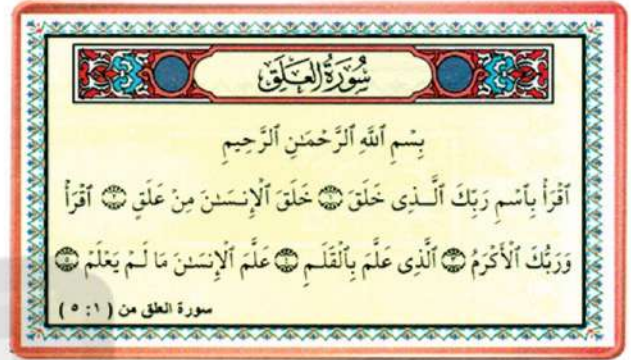 سُورَةُ العَلَقِ
بِسْمِ ٱللَّهِ ٱلرَّحْمَـٰنِ ٱلرَّحِيمِ
ٱقْرَأْ بِٱسْمِ رَبِّكَ ٱلَّـذِى خَلَقَ ۝١ خَلَقَ ٱلْإِنسَـٰنَ مِنْ عَلَقٍ ۝٢ ٱقْرَأْ
وَرَبُّكَ ٱلْأَكْرَمُ ۝٣ ٱلَّذِى عَلَّمَ بِٱلْقَلَـمِ ۝٤ عَلَّمَ ٱلْإِنسَـٰنَ مَا لَـمْ يَعْلَمْ ۝٥
سورة العلق من ( ١ : ٥ )